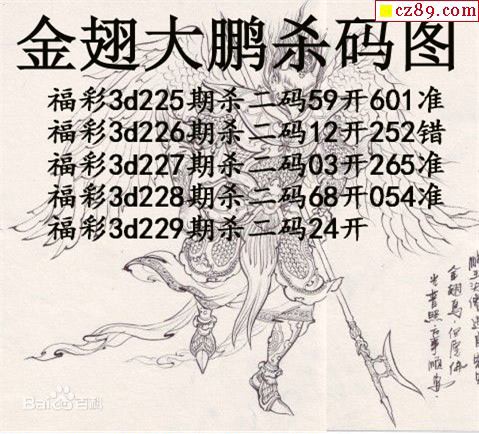 cz89.com
金翅大鹏杀码图
福彩3d225期杀二码59开601准
福彩3d226期杀二码12开252错
福彩3d227期杀二码03开265准
福彩3d228期杀二码68开054准
福彩3d229期杀二码24开
Baidu百科